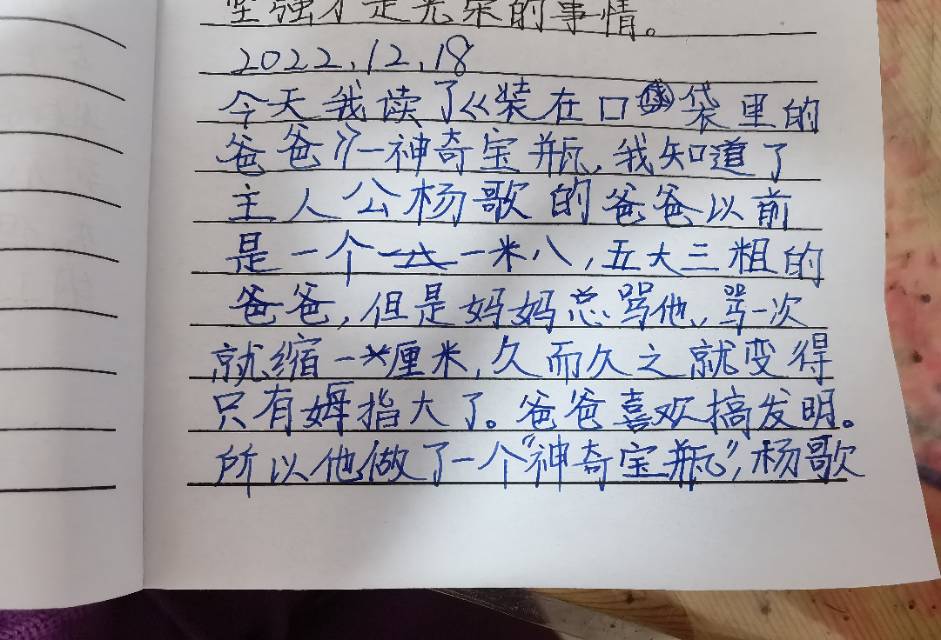 坚强才是光荣的事情。
2022.12.18
今天我读了《装在口袋里的
爸爸》一神奇宝瓶,我知道了
主人公杨歌的爸爸以前
是一个一米八,五大三粗的
爸爸,但是妈妈总骂他,骂一次
就缩一厘米,久而久之就变得
只有姆指大了。爸爸喜欢搞发明。
所以他做了一个“神奇宝瓶”,杨歌